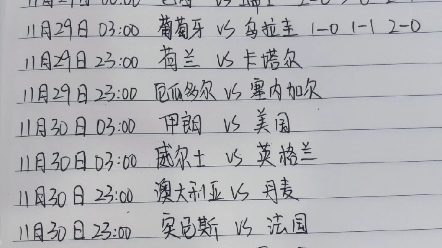 11月29日 03:00 葡萄牙 vs 乌拉圭 1-0 1-1 2-0
11月29日 23:00 荷兰 vs 卡塔尔
11月29日 23:00 厄瓜多尔 vs 塞内加尔
11月30日 03:00 伊朗 vs 美国
11月30日 03:00 威尔士 vs 英格兰
11月30日 23:00 澳大利亚 vs 丹麦
11月30日 23:00 突尼斯 vs 法国